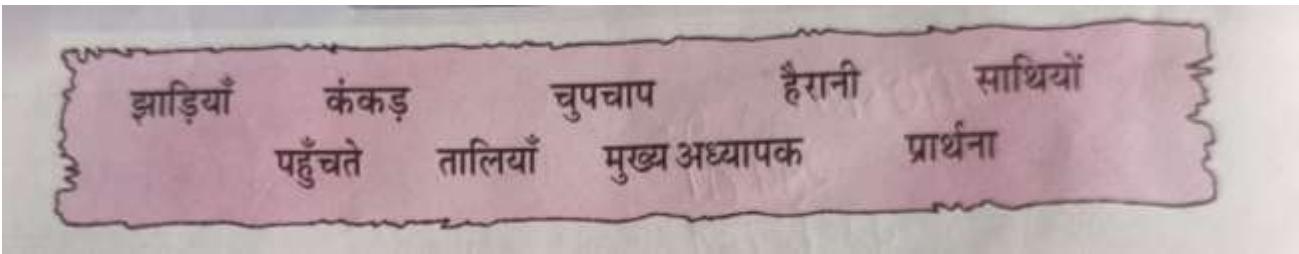 झाड़ियाँ कंकड़ चुपचाप हैरानी साथियों
पहुँचते तालियाँ मुख्य अध्यापक प्रार्थना